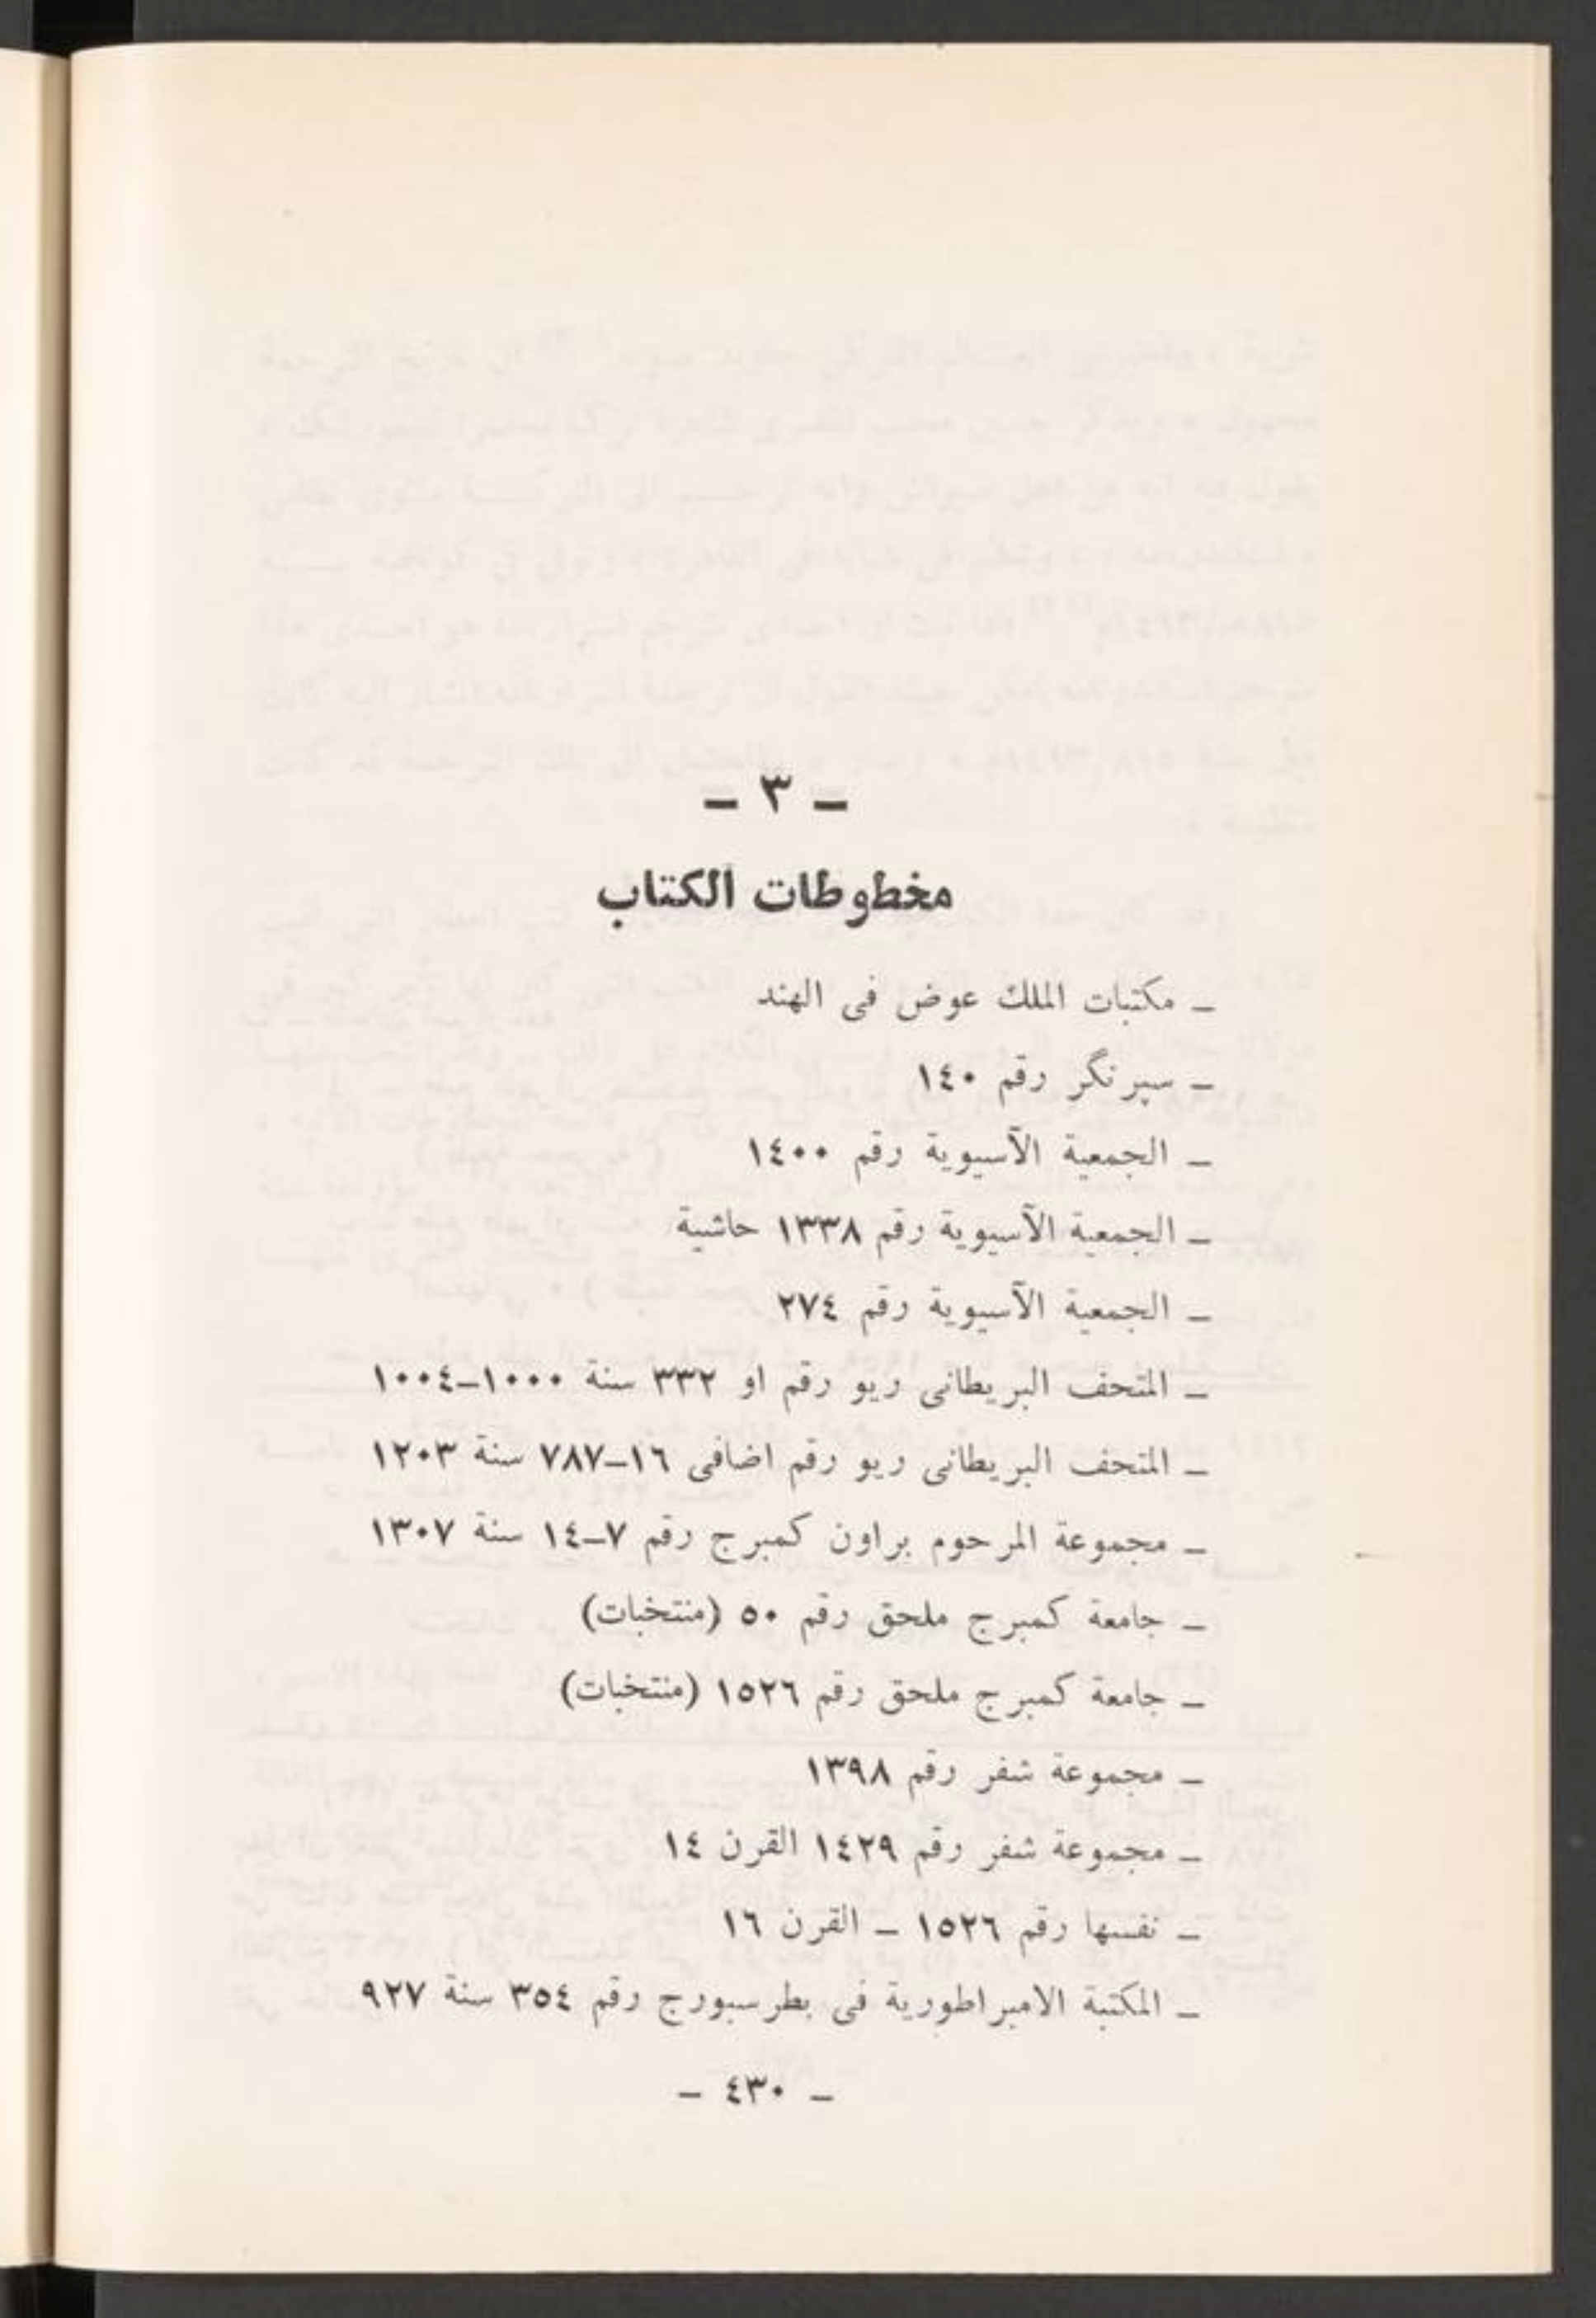 - ٣ -
مخطوطات الكتاب
- مكتبات الملك عوض فى الهند
- سپرنگر رقم ١٤٠
- الجمعية الآسيوية رقم ١٤٠٠
- الجمعية الآسيوية رقم ١٣٣٨ حاشية
- الجمعية الآسيوية رقم ٢٧٤
- المتحف البريطانى ريو رقم او ٣٣٢ سنة ١٠٠٠-١٠٠٤
- المتحف البريطانى ريو رقم اضافى ١٦-٧٨٧ سنة ١٢٠٣
- مجموعة المرحوم براون كمبرج رقم ٧-١٤ سنة ١٣٠٧
- جامعة كمبرج ملحق رقم ٥٠ (منتخبات)
- جامعة كمبرج ملحق رقم ١٥٢٦ (منتخبات)
- مجموعة شفر رقم ١٣٩٨
- مجموعة شفر رقم ١٤٢٩ القرن ١٤
- نفسها رقم ١٥٢٦ - القرن ١٦
- المكتبة الامبراطورية فى بطرسبورج رقم ٣٥٤ سنة ٩٢٧
- ٤٣٠ -